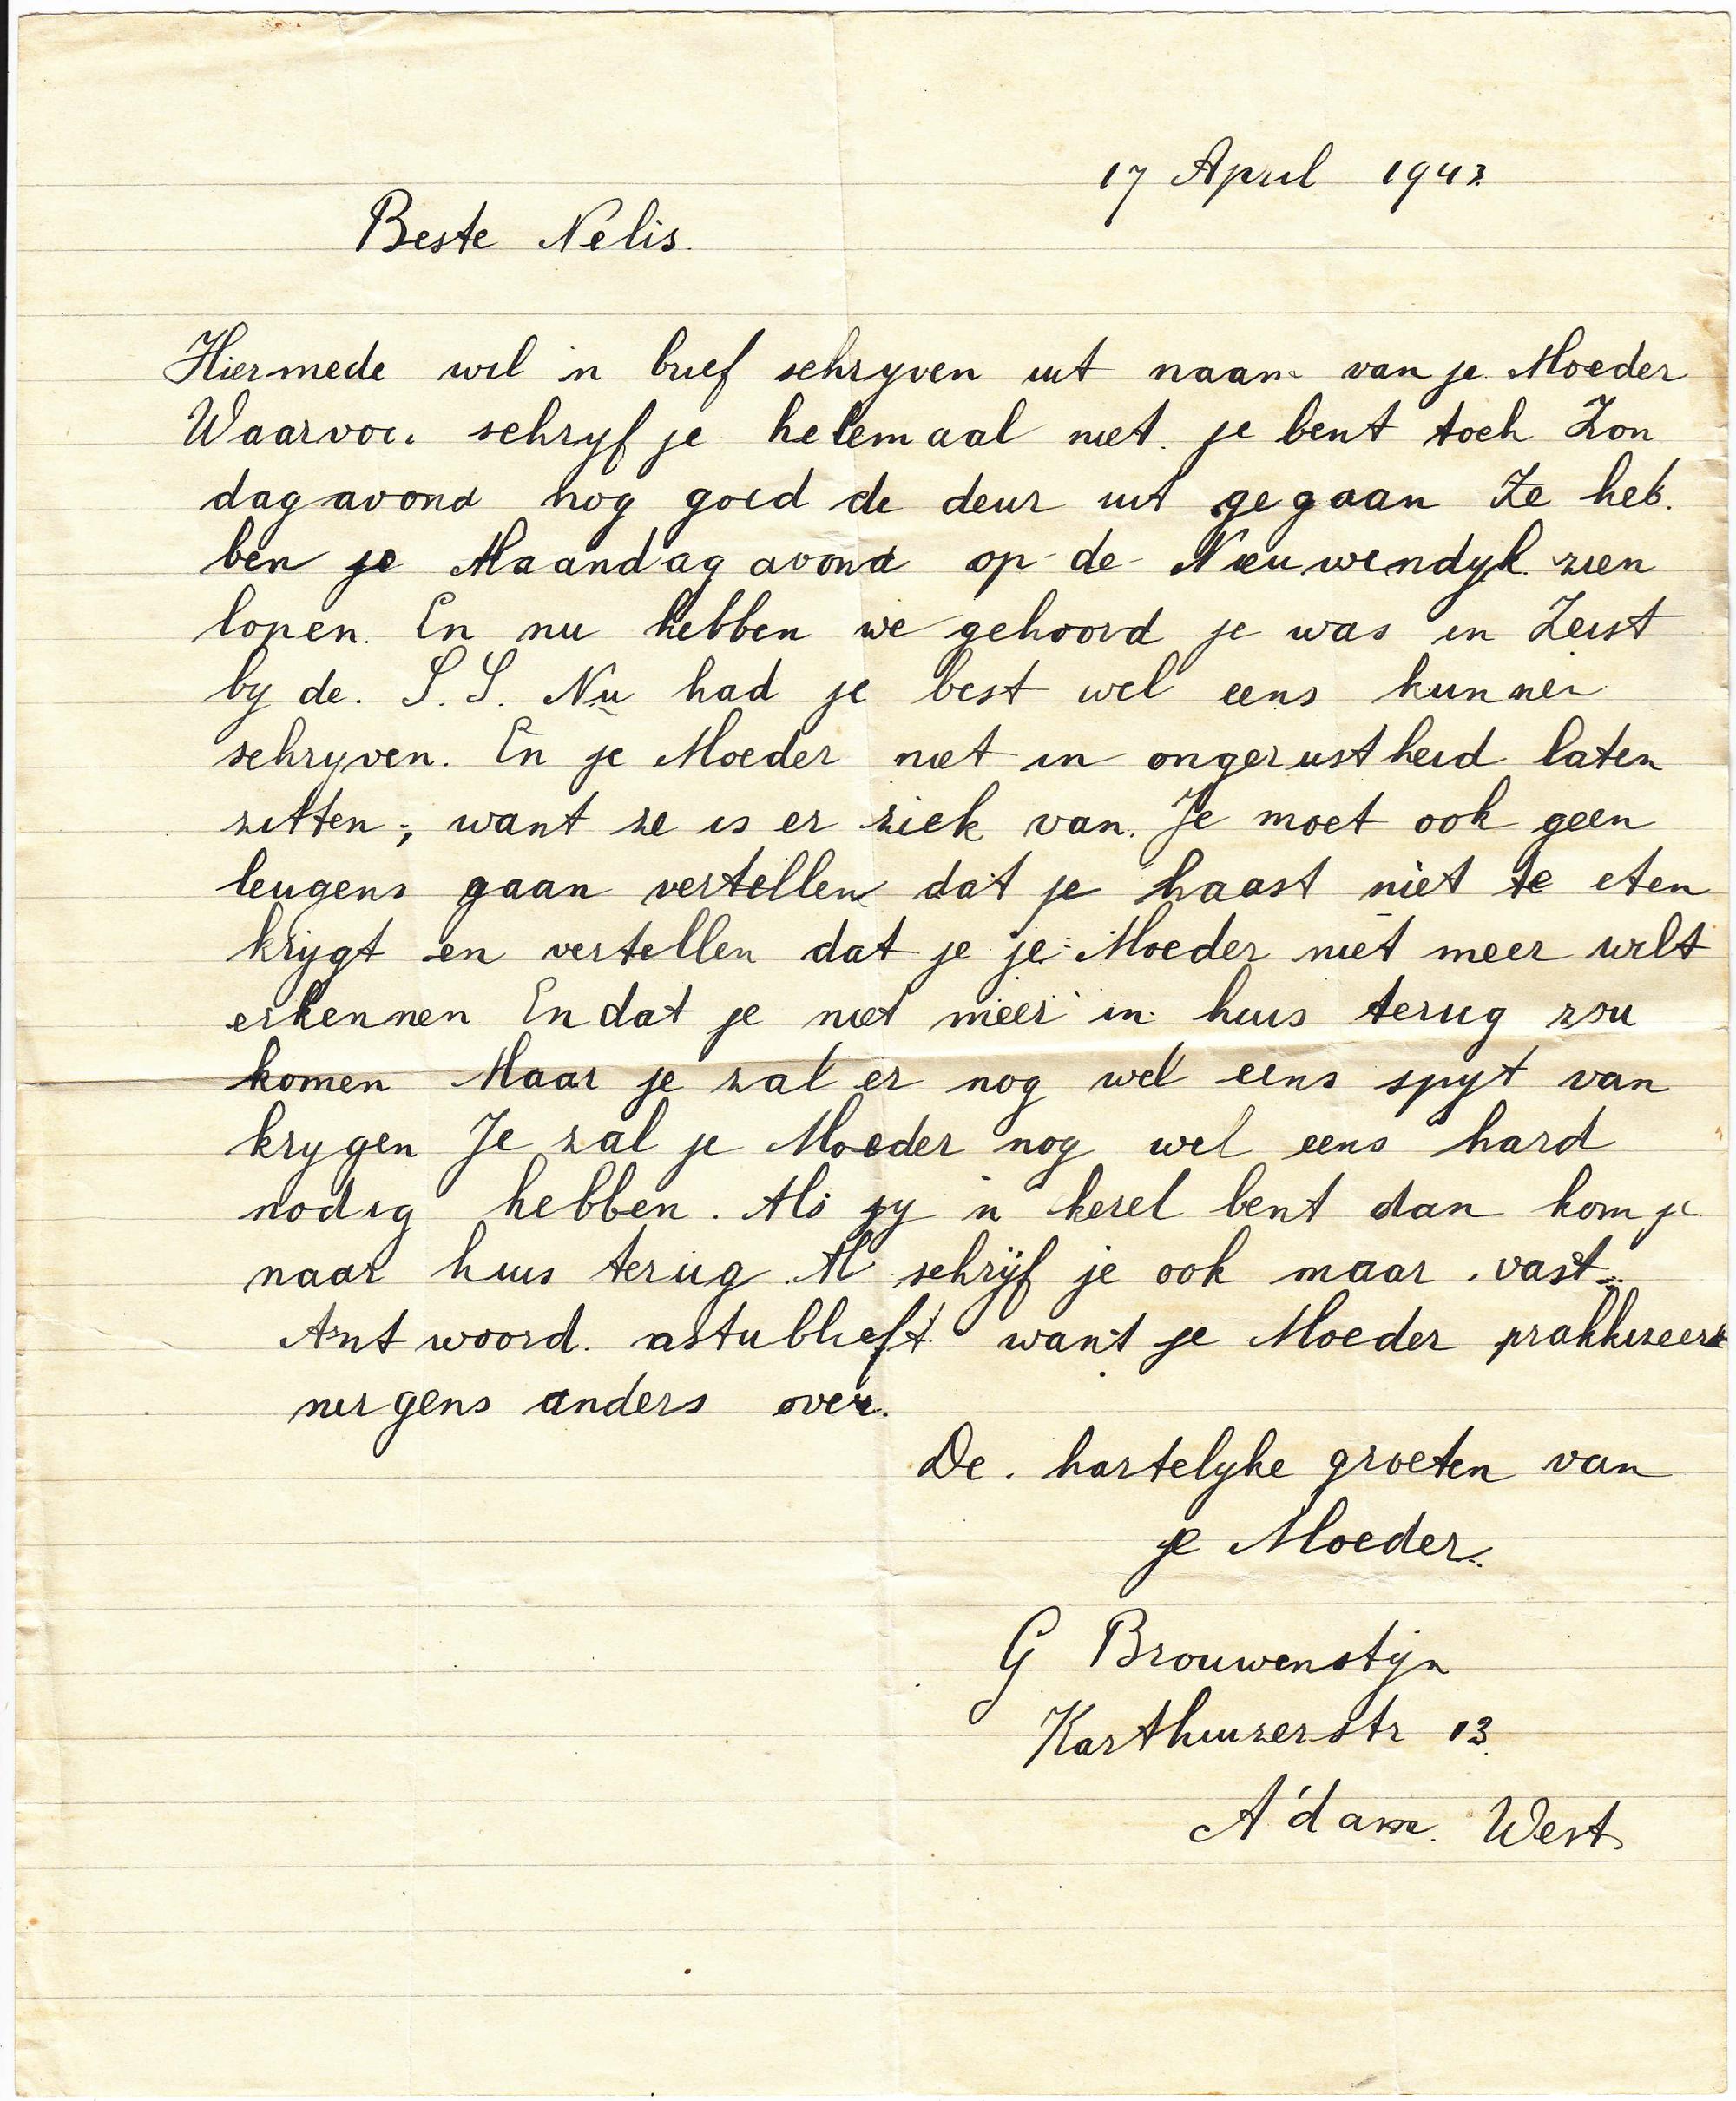 17 April 1943
Beste Nelis.
Hiermede wil 'n brief schryven uit naam van je Moeder
Waarvoor schryf je helemaal niet. je bent toch Zon
dagavond nog goed de deur uit gegaan Ze heb.
ben je Maandag avond op de Nieuwendyk zien
lopen. En nu hebben we gehoord je was in Zeist
by de. S.S. Nu had je best wel eens kunnen
schryven. En je Moeder niet in ongerustheid laten
zitten, want ze is er ziek van. Je moet ook geen
leugens gaan vertellen dat je haast niet te eten
krijgt en vertellen dat je je Moeder niet meer wilt
erkennen En dat je niet meer in huis terug zou
komen Maar je zal er nog wel eens spyt van
krygen Je zal je Moeder nog wel eens hard
nodig hebben. Als jy 'n kerel bent dan kom je
naar huis terug. Al schrijf je ook maar vast.
Antwoord. astublieft want je Moeder prakkizeert
nirgens anders over.
De. hartelyke groeten van
je Moeder.
G Brouwenstijn
Karthuizerstr 13
A'dam. West